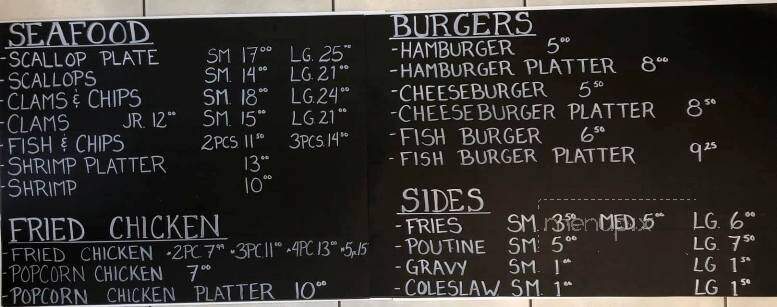 SEAFOOD
-SCALLOP PLATE SM 17⁰⁰ LG. 25⁰⁰
-SCALLOPS SM. 14⁰⁰ LG. 21⁰⁰
-CLAMS & CHIPS SM. 18⁰⁰ LG. 24⁰⁰
-CLAMS JR. 12⁰⁰ SM. 15⁰⁰ LG 21⁰⁰
-FISH & CHIPS 2PCS 11⁵⁰ 3PCS. 14⁵⁰
-SHRIMP PLATTER 13⁰⁰
-SHRIMP 10⁰⁰
FRIED CHICKEN
-FRIED CHICKEN •2PC. 7⁹⁹ •3PC. 11⁰⁰ •4PC 13⁰⁰
-POPCORN CHICKEN 7⁰⁰
-POPCORN CHICKEN PLATTER 10⁰⁰
BURGERS
-HAMBURGER 5⁰⁰
-HAMBURGER PLATTER 8⁰⁰
-CHEESEBURGER 5⁵⁰
-CHEESEBURGER PLATTER 8⁵⁰
-FISH BURGER 6⁵⁰
-FISH BURGER PLATTER 9²⁵
SIDES
-FRIES SM. 3⁵⁰ MED. 5⁰⁰ LG. 6⁰⁰
-POUTINE SM. 5⁰⁰ LG. 7⁵⁰
-GRAVY SM. 1⁰⁰ LG 1⁵⁰
-COLESLAW SM. 1⁰⁰ LG 1⁵⁰
menupix